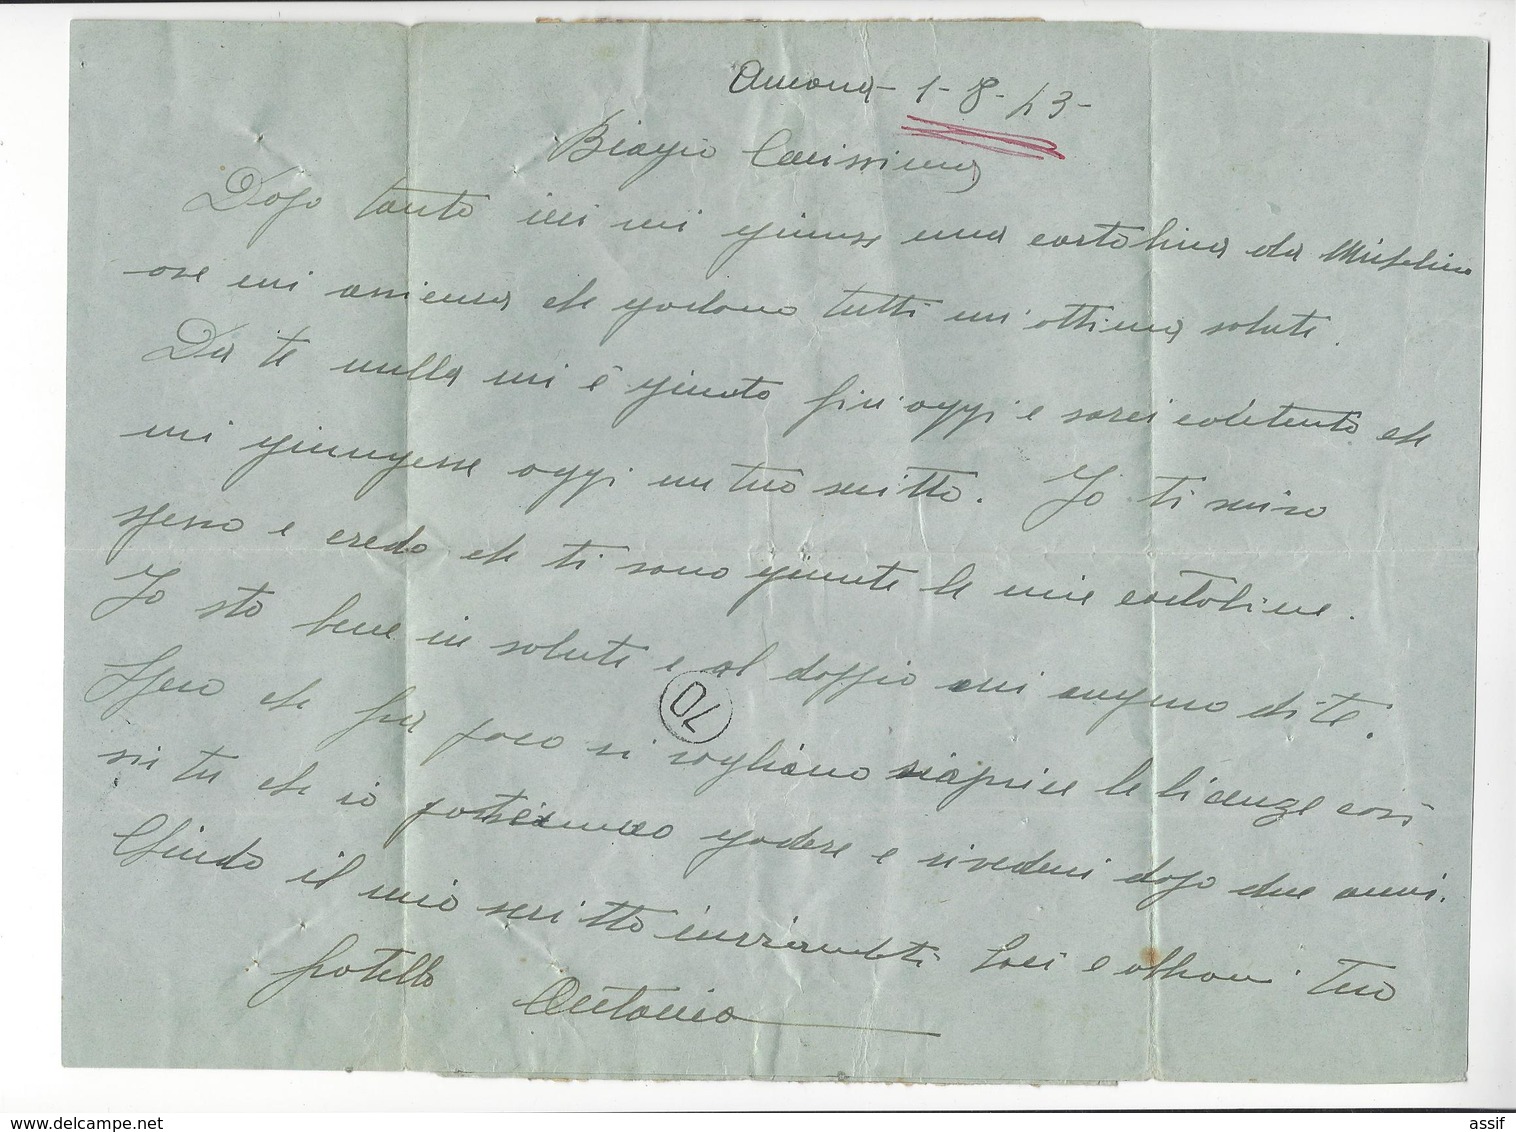 Ancona - 1-8-43-
Biagio Carissimo
Dopo tanto ieri mi giunse una cartolina da
ove mi assicura che godono tutti un'ottima salute.
Da te nulla mi è giunto fin'oggi e sarei contento che
mi giungesse oggi un tuo scritto. Io ti scrivo
spesso e credo che ti sono giunte le mie cartoline.
Io sto bene in salute e al doppio mi auguro di te.
Spero che fra poco si vogliano riaprire le licenze così
sii tu che io potremmo godere e rivederci dopo due anni.
Chiudo il mio scritto inviandoti baci e abbracci tuo
fratello Antonio
70
www.delcampe.net
assif